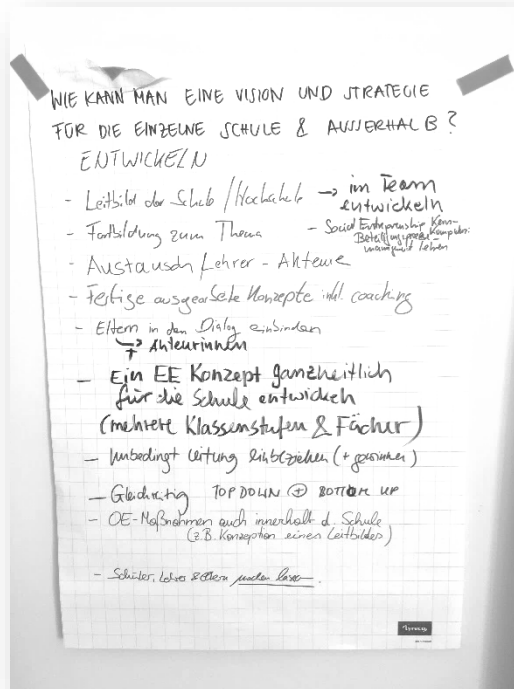 WIE KANN MAN EINE VISION UND STRATEGIE
FÜR DIE EINZELNE SCHULE & AUSSERHALB?
ENTWICKELN
- Leitbild der Schule / Hochschule → im Team
entwickeln
- Fortbildung zum Thema
- Social Entrepreneurship
- Austausch Lehrer - Akteure
- Fertige ausgearbeitete Konzepte inkl. coaching
- Eltern in den Dialog einbinden
→ Akteurinnen
- Ein EE Konzept ganzheitlich
für die Schule entwickeln
(mehrere Klassenstufen & Fächer)
- Unbedingt Leitung einbeziehen (+ gewinnen)
- Gleichzeitig TOP DOWN ⊕ BOTTOM UP
- OE-Maßnahmen auch innerhalb d. Schule
(z.B. Konzeption eines Leitbildes)
- Schüler, Lehrer & Eltern machen lassen.